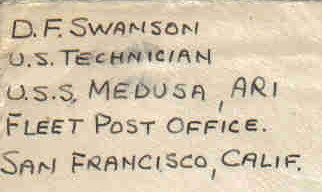 D.F. SWANSON
U.S. TECHNICIAN
U.S.S. MEDUSA, AR1
FLEET POST OFFICE.
SAN FRANCISCO, CALIF.